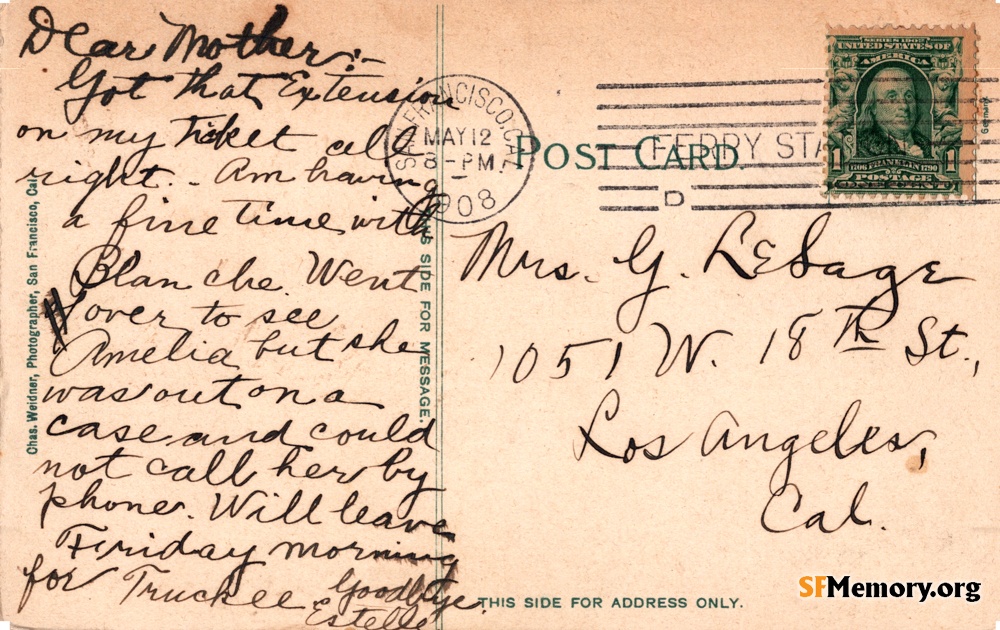 Dear Mother:-
Got that Extension
on my Ticket all
right. - Am having
a fine time with
Blanche. Went
over to see
Amelia but she
was out on a
case and could
not call her by
phone. Will leave
Friday morning
for Truckee Goodbye.
Estelle
Chas. Weidner, Photographer, San Francisco, Cal.
SIDE FOR MESSAGE.
SAN FRANCISCO, CAL.
MAY 12
8 - PM
1908
FERRY STA
D
POST CARD.
SERIES 1902
UNITED STATES OF
AMERICA
1 1706 FRANKLIN 1790 1
POSTAGE
ONE CENT
Germany
Mrs. G. LeSage
1051 W. 18th St.,
Los Angeles,
Cal.
THIS SIDE FOR ADDRESS ONLY.
SFMemory.org